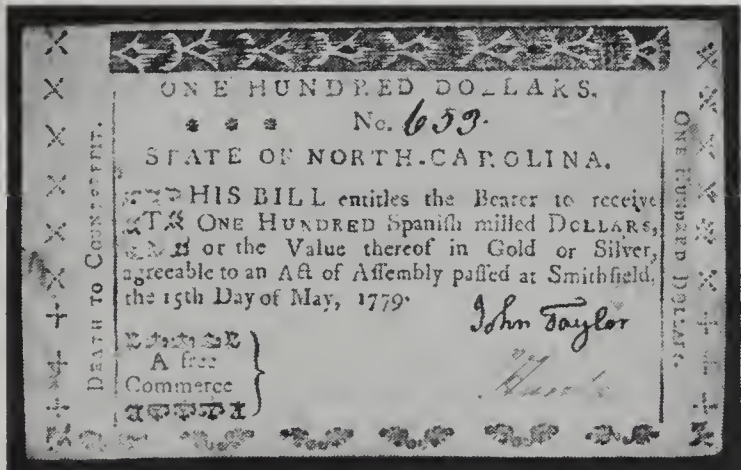 ONE HUNDRED DOLLARS.
No. 653.
STATE OF NORTH-CAROLINA.
THIS BILL entitles the Bearer to receive
ONE HUNDRED Spaniſh milled DOLLARS,
or the Value thereof in Gold or Silver,
agreeable to an Act of Aſſembly paſſed at Smithfield,
the 15th Day of May, 1779.
John Taylor
A free
Commerce
DEATH TO COUNTERFEIT.
ONE HUNDRED DOLLARS.